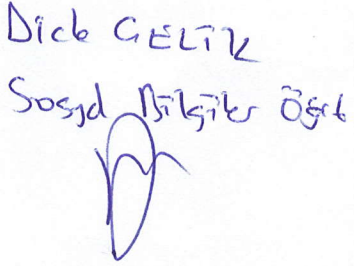 Dicle ÇELİK
Sosyal Bilgiler Öğrt